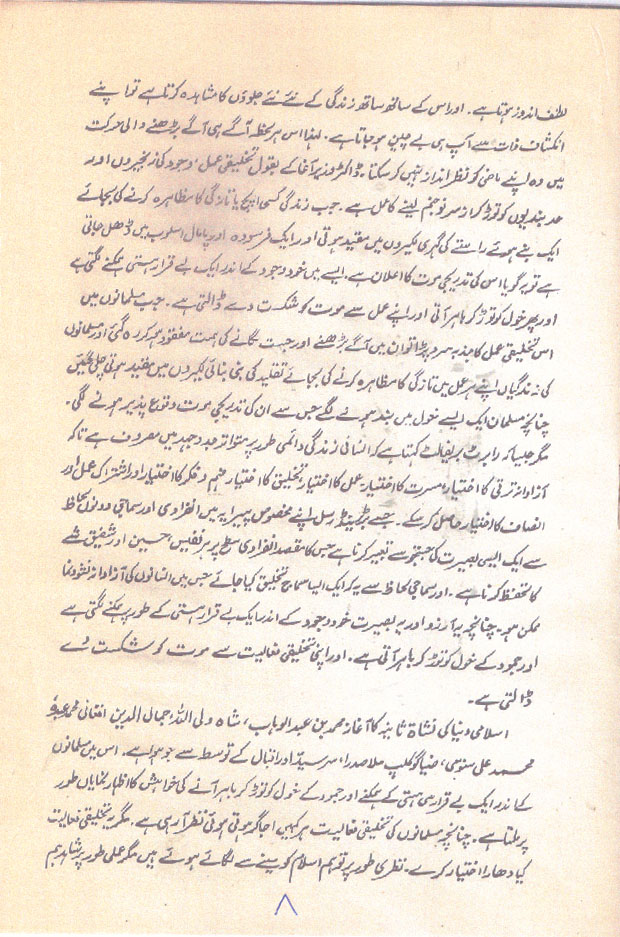 لطف اندوز ہوتا ہے۔ اور اس کے ساتھ ساتھ زندگی کے نئے نئے جلوؤں کا مشاہدہ کرتا ہے تو اپنے
انکشاف ذات سے آپ ہی بے چین ہو جاتا ہے۔ لہٰذا اس ہر لحظہ آگے ہی آگے بڑھنے والی حرکت
میں وہ اپنے ماضی کو نظر انداز نہیں کر سکتا۔ ڈاکٹر وزیر آغا کے بقول تخلیقی عمل وجود کی زنجیروں اور
حد بندیوں کو توڑ کر از سر نو جنم لینے کا عمل ہے۔ جب زندگی کسی اپچ یا تازگی کا مظاہرہ کرنے کی بجائے
ایک بنے ہوئے راستے کی گہری لکیروں میں مقید ہوتی اور ایک فرسودہ اور پامال اسلوب میں ڈھل جاتی
ہے تو یہ گویا اس کی تدریجی موت کا اعلان ہے۔ ایسے میں خود وجود کے اندر ایک بے قرار ہستی ہمکنے لگتی ہے
اور پھر خول کو توڑ کر باہر آتی اور اپنے عمل سے موت کو شکست دے ڈالتی ہے۔ جب مسلمانوں میں
اس تخلیقی عمل کا جذبہ سرد پڑا تو ان میں آگے بڑھنے اور جست لگانے کی ہمت مفقود ہو کر رہ گئی اور مسلمانوں
کی زندگیاں اپنے ہر عمل میں تازگی کا مظاہرہ کرنے کی بجائے تقلید کی بنی بنائی لکیروں میں مقید ہوتی چلی گئیں
چنانچہ مسلمان ایک ایسے خول میں بند ہونے لگے جس سے ان کی تدریجی موت وقوع پذیر ہونے لگی۔
مگر جیسا کہ رابرٹ بریفالٹ کہتا ہے کہ انسانی زندگی دائمی طور پر متواتر جدوجہد میں مصروف ہے تاکہ
آزادانہ ترقی کا اختیار، مسرت کا اختیار، عمل کا اختیار، تخلیق کا اختیار، فہم و فکر کا اختیار اور اشتراک عمل اور
انصاف کا اختیار حاصل کر سکے۔ جسے برٹرینڈ رسل اپنے مخصوص پیرایہ میں انفرادی اور سماجی دونوں لحاظ
سے ایک ایسی بصیرت کی جستجو سے تعبیر کرتا ہے جس کا مقصد انفرادی سطح پر ہر نفیس، حسین اور شفیق شے
کا تحفظ کرنا ہے۔ اور سماجی لحاظ سے یہ کہ ایک ایسا سماج تخلیق کیا جائے جس میں انسانوں کی آزادانہ نشوونما
ممکن ہو۔ چنانچہ یہ آرزو اور یہ بصیرت خود وجود کے اندر ایک بے قرار ہستی کے طور پر ہمکنے لگتی ہے
اور جمود کے خول کو توڑ کر باہر آتی ہے۔ اور اپنی تخلیقی فعالیت سے موت کو شکست دے
ڈالتی ہے۔
اسلامی دنیا کی نشاۃ ثانیہ کا آغاز محمد بن عبدالوہاب، شاہ ولی اللہ، جمال الدین افغانی، محمد عبدہٗ
محمد علی سنوسی، ضیا گوکلپ، ملا صدرا، سر سید اور اقبال کے توسط سے جو ہوا ہے۔ اس میں مسلمانوں
کے اندر ایک بے قرار سی ہستی کے ہمکنے اور جمود کے خول کو توڑ کر باہر آنے کی خواہش کا اظہار نمایاں طور
پر ملتا ہے۔ چنانچہ مسلمانوں کی تخلیقی فعالیت ہر کہیں اجاگر ہوتی ہوئی نظر آ رہی ہے۔ مگر یہ تخلیقی فعالیت
کیا دھارا اختیار کرے۔ نظری طور پر تو ہم اسلام کو سینے سے لگائے ہوئے ہیں مگر عملی طور پر شاید ہم